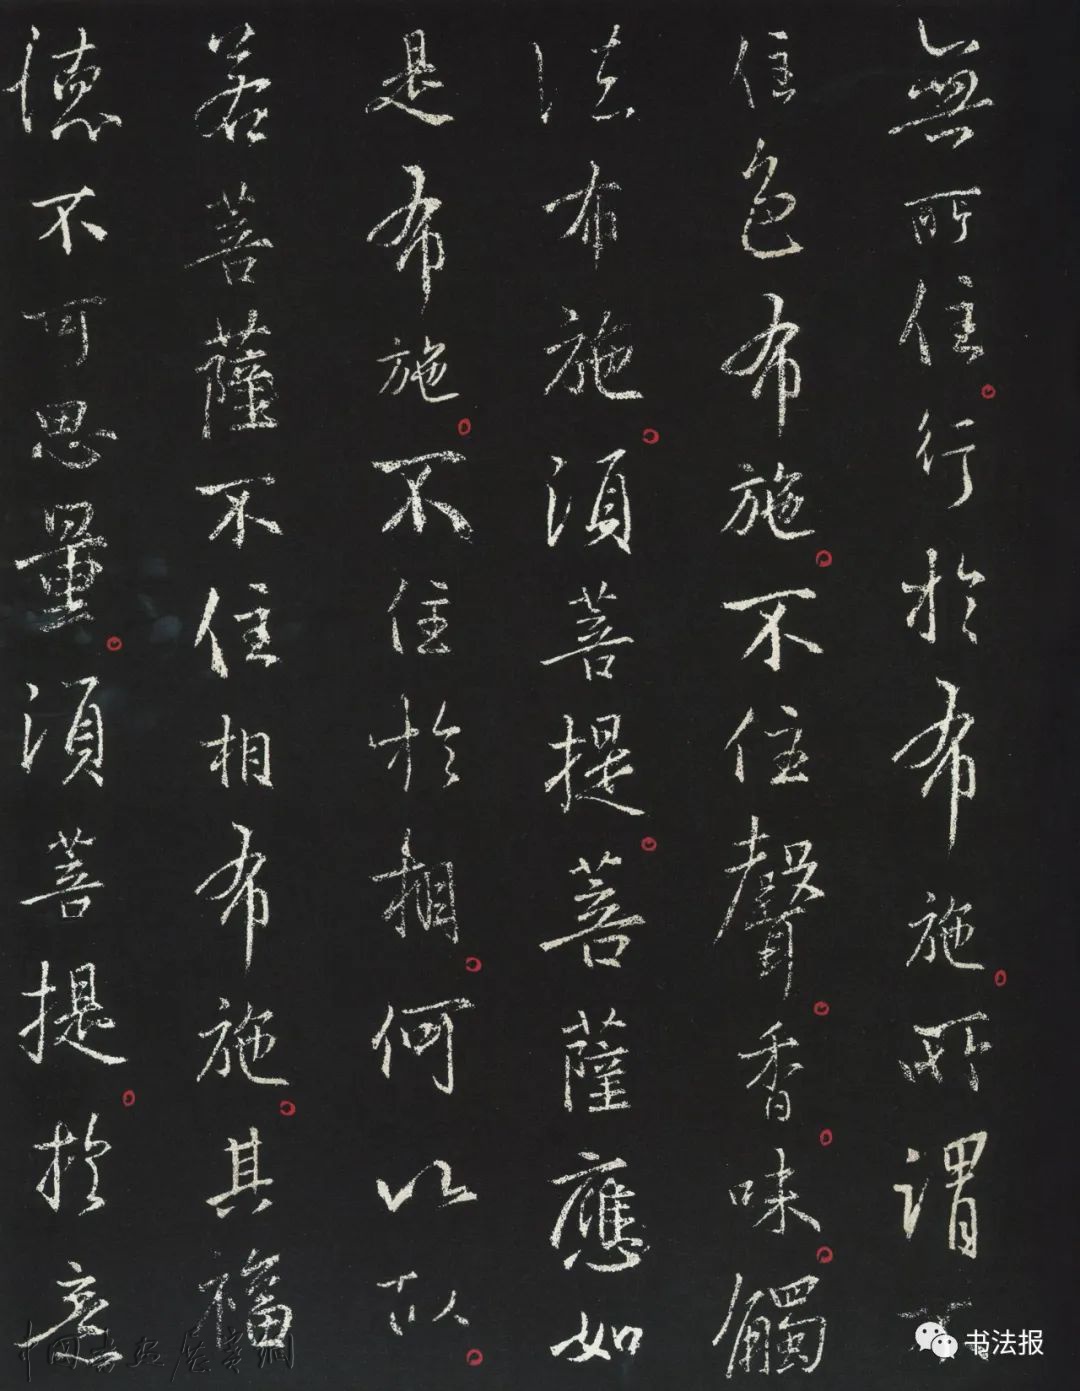 無所住。行於布施。所謂不
住色布施。不住聲。香。味。觸
法布施。須菩提。菩薩應如
是布施。不住於相。何以故。
若菩薩不住相布施。其福
德不可思量。須菩提。於意
中国书画展赛网
书法报